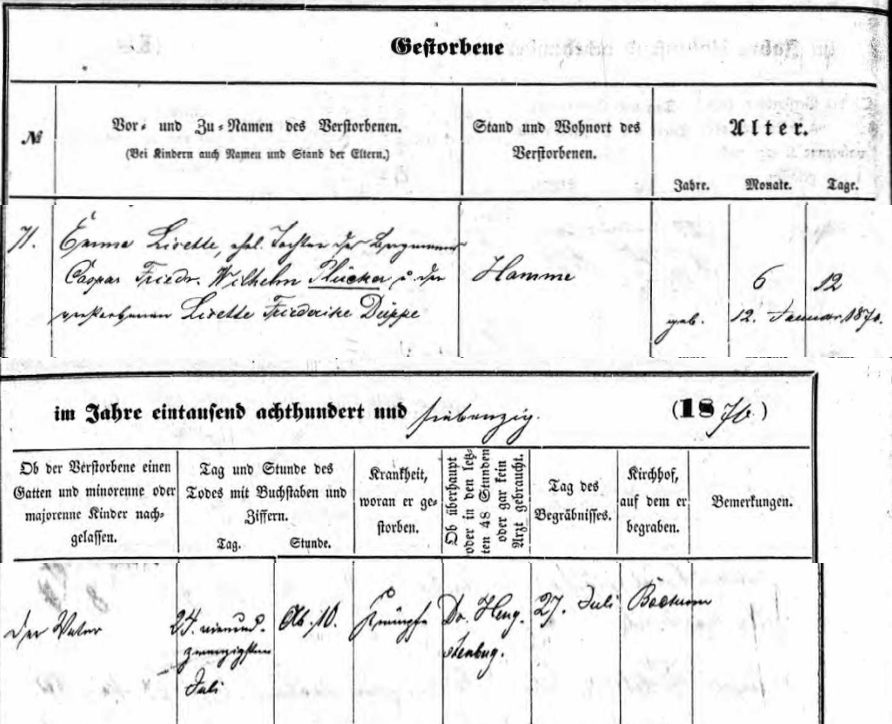 Gestorbene
№
Vor- und Zu-Namen des Verstorbenen.
(Bei Kindern auch Namen und Stand der Eltern.)
Stand und Wohnort des
Verstorbenen.
Alter.
Jahre. Monate. Tage.
71. Emma Lisette, ehel. Tochter des Bergmanns
Caspar Friedr. Wilhelm Plücker u. der
verstorbenen Lisette Friederike Düppe
Hamme
6 12
geb. 12. Januar 1870.
im Jahre eintausend achthundert und siebenzig. (1870.)
Ob der Verstorbene einen
Gatten und minorenne oder
majorenne Kinder nach-
gelassen.
Tag und Stunde des
Todes mit Buchstaben und
Ziffern.
Tag. Stunde.
Krankheit,
woran er ge-
storben.
Ob überhaupt
oder in den letz-
ten 48 Stunden
oder gar kein
Arzt gebraucht.
Tag des
Begräbnisses.
Kirchhof,
auf dem er
begraben.
Bemerkungen.
der Vater
24. vierund-
zwanzigsten
Juli
Ab. 10.
Krämpfe
Dr. Heng-
stenbug.
27. Juli
Bochum